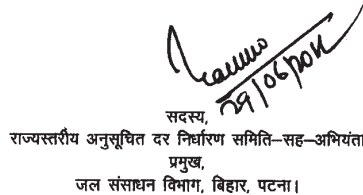 29/06/2011
सदस्य,
राज्यस्तरीय अनुसूचित दर निर्धारण समिति-सह-अभियंता
प्रमुख,
जल संसाधन विभाग, बिहार, पटना।